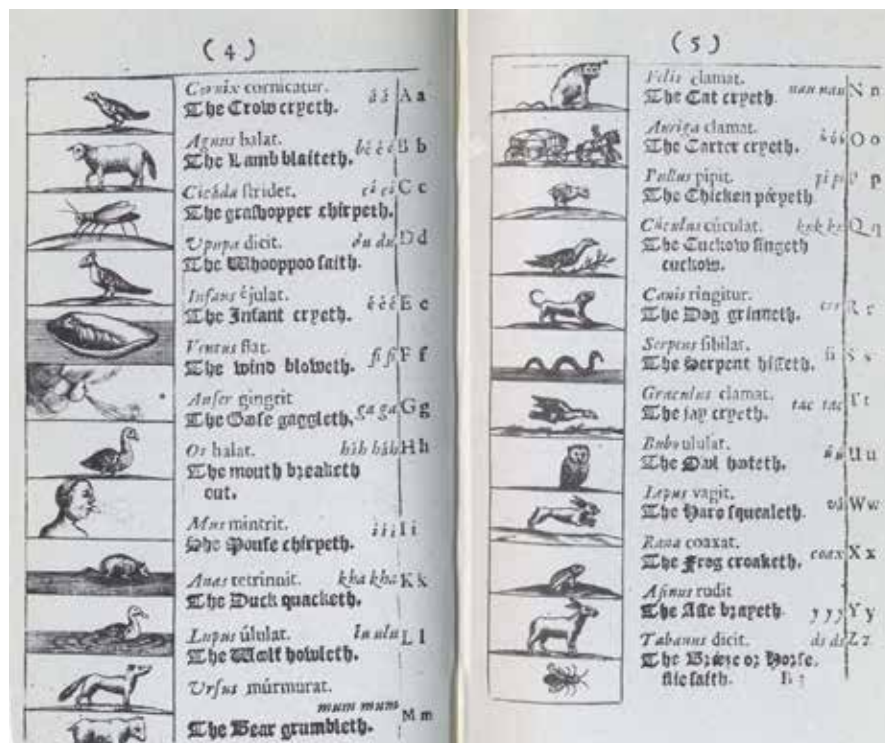 ( 4 )
Cornix cornicatur. á á A a
The Crow cryeth.
Agnus balat. bé é é B b
The Lamb blaiteth.
Cicàda stridet. ci ci C c
The grashopper chirpeth.
Upupa dicit. du du D d
The Whooppoo saith.
Infans éjulat. é é é E e
The Infant cryeth.
Ventus flat. fi fi F f
The wind bloweth.
Anser gingrit ga ga G g
The Gose gaggleth.
Os halat. háh háh H h
The mouth breatheth
out.
Mus mintrit. í í í I i
The Mouse chirpeth.
Anas tetrinnit. kha kha K k
The Duck quacketh.
Lupus úlulat. lu ulu L l
The Wolf howleth.
Ursus múrmurat.
mum mum M m
The Bear grumbleth.
( 5 )
Felis clamat. nau nau N n
The Cat cryeth
Auriga clamat. ó ó ó O o
The Carter cryeth.
Pullus pipit. pi pi P p
The Chicken peepeth.
Cúculus cúculat. kuk ku Q q
The Cuckow singeth
cuckow.
Canis ringitur. err R r
The Dog grinneth.
Serpens sibilat. si S s
The Serpent hisseth.
Graculus clamat. tac tac T t
The Jay cryeth.
Bubo ululat. ú ú U u
The Owl hooteth.
Lepus vagit. vá W w
The Hare squeaketh.
Rana coaxat. coax X x
The Frog croaketh.
Asinus rudit y y y Y y
The Asse brayeth.
Tabanus dicit. ds ds Z z
The Breeze or Horse-
flie saith.